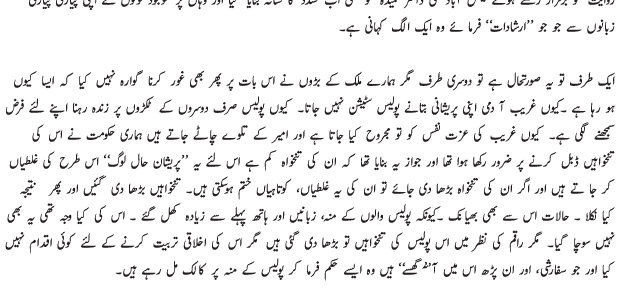 زبانوں سے جو جو ”ارشادات“ فرمائے وہ ایک الگ کہانی ہے۔
ایک طرف تو یہ صورتحال ہے تو دوسری طرف مگر ہمارے ملک کے بڑوں نے اس بات پر پھر بھی غور کرنا گوارہ نہیں کیا کہ ایسا کیوں
ہو رہا ہے ۔کیوں غریب آ دمی اپنی پریشانی بتانے پولیس سٹیشن نہیں جاتا۔ کیوں پولیس صرف دوسروں کے ٹکڑوں پر زندہ رہنا اپنے لئے فرض
سمجھنے لگی ہے۔ کیوں غریب کی عزت نفس کو تو مجروح کیا جاتا ہے اور امیر کے تلوے چاٹے جاتے ہیں ہماری حکومت نے اس کی
تنخواہیں ڈبل کرنے پر ضرور رکھا ہوا تھا اور جواز یہ بنایا تھا کہ ان کی تنخواہ کم ہے اس لئے یہ ”پریشان حال لوگ“ اس طرح کی غلطیاں
کر جاتے ہیں اور اگر ان کی تنخواہ بڑھا دی جائے تو ان کی یہ غلطیاں، کوتاہیاں ختم ہوسکتی ہیں۔ تنخواہیں بڑھا دی گئیں اور پھر نتیجہ
کیا نکلا ۔ حالات اس سے بھی بھیانک ۔کیونکہ پولیس والوں کے منہ، زبانیں اور ہاتھ پہلے سے زیادہ کھل گئے ۔ اس کی کیا وجہ تھی یہ بھی
نہیں سوچا گیا۔ مگر راقم کی نظر میں اس پولیس کی تنخواہیں تو بڑھا دی گئی ہیں مگر اس کی اخلاقی تربیت کرنے کے لئے کوئی اقدام نہیں
کیا اور جو سفارشی، اور ان پڑھ اس میں آ”گھسے“ ہیں وہ ایسے حکم فرما کر پولیس کے منہ پر کالک مل رہے ہیں۔